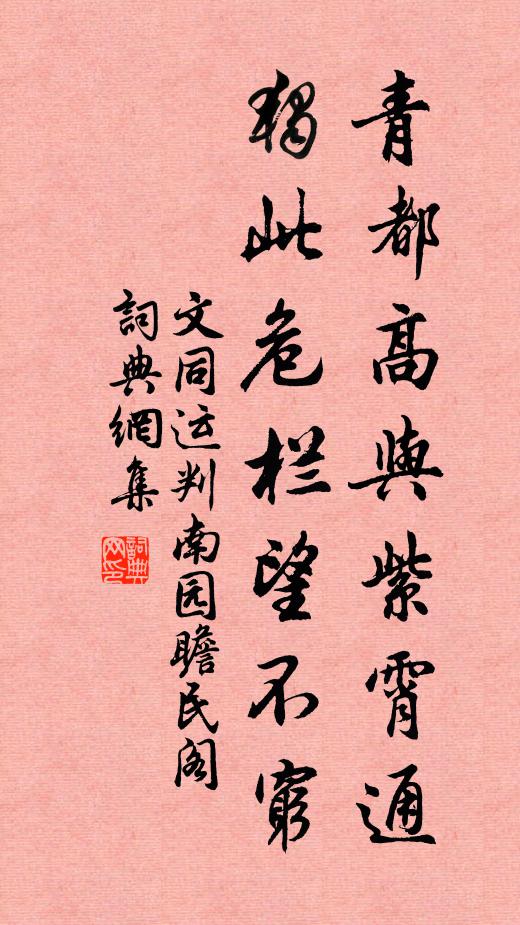 青都高與紫霄通
獨此危栏望不窮
文同运判南园瞻民阁
詞典網集
詞典网印